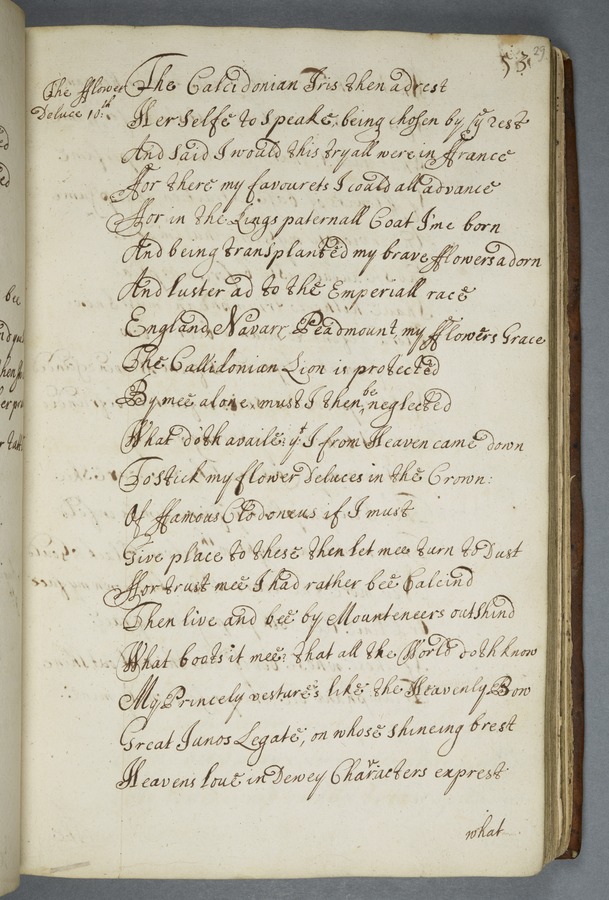 53
29
The fflower
Deluce 10:th
The Calcidonian Iris then adrest
Her selfe to speake, being chosen by ye rest
And said I would this tryall were in ffrance
ffor there my favourets I could all advance
ffor in the Kings paternall Coat I'me born
And being transplanted my brave fflowers adorn
And luster ad to the Emperiall race
England, Navarr, Peadmount, my fflowers Grace
The Callidonian Lion is protected
By mee alone, must I then be neglected
What doth availe yt I from Heaven came down
To stick my flower Deluces in the Crown:
Of ffamous Clodoneus if I must
Give place to these then let mee turn to Dust
ffor trust mee I had rather bee Calcind
Then live and bee by Mounteneers outshind
What boots it mee? that all the World doth know
My Princely vesture's like the Heavenly Bow
Great Junos Legate, on whose shineing brest
Heavens love in Dewey Characters exprest
what